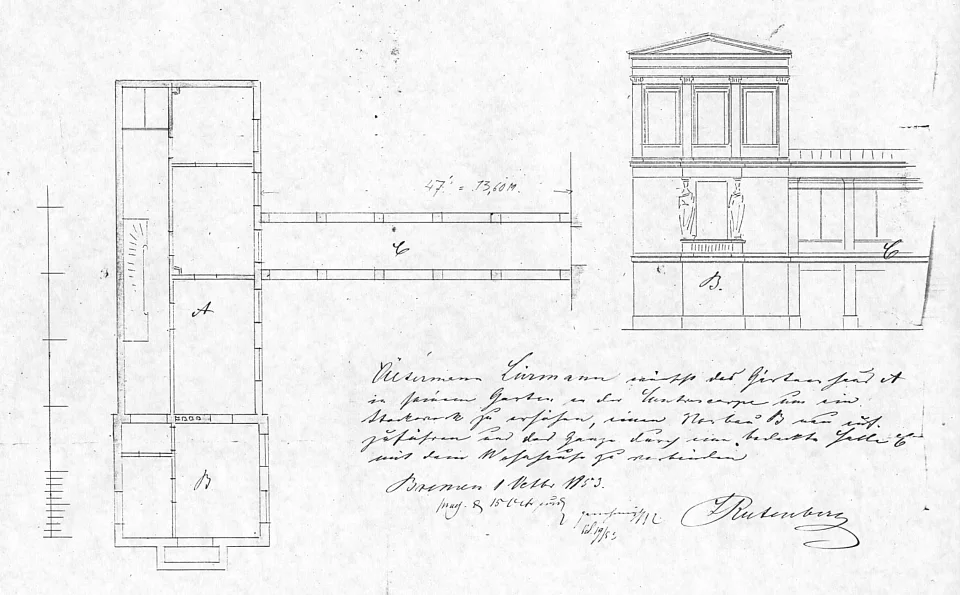 47' = 13,60 M.
C
A
B
B.
C
Altermann Lürmann wünscht das Gartenhaus A
in seinem Garten an der Contrescarpe um ein
Stockwerk zu erhöhen, einen Vorbau B neu auf-
zuführen und das Ganze durch eine bedeckte Halle C
mit dem Wohnhause zu verbinden
Bremen 1 Octbr 1853.
Rutenberg